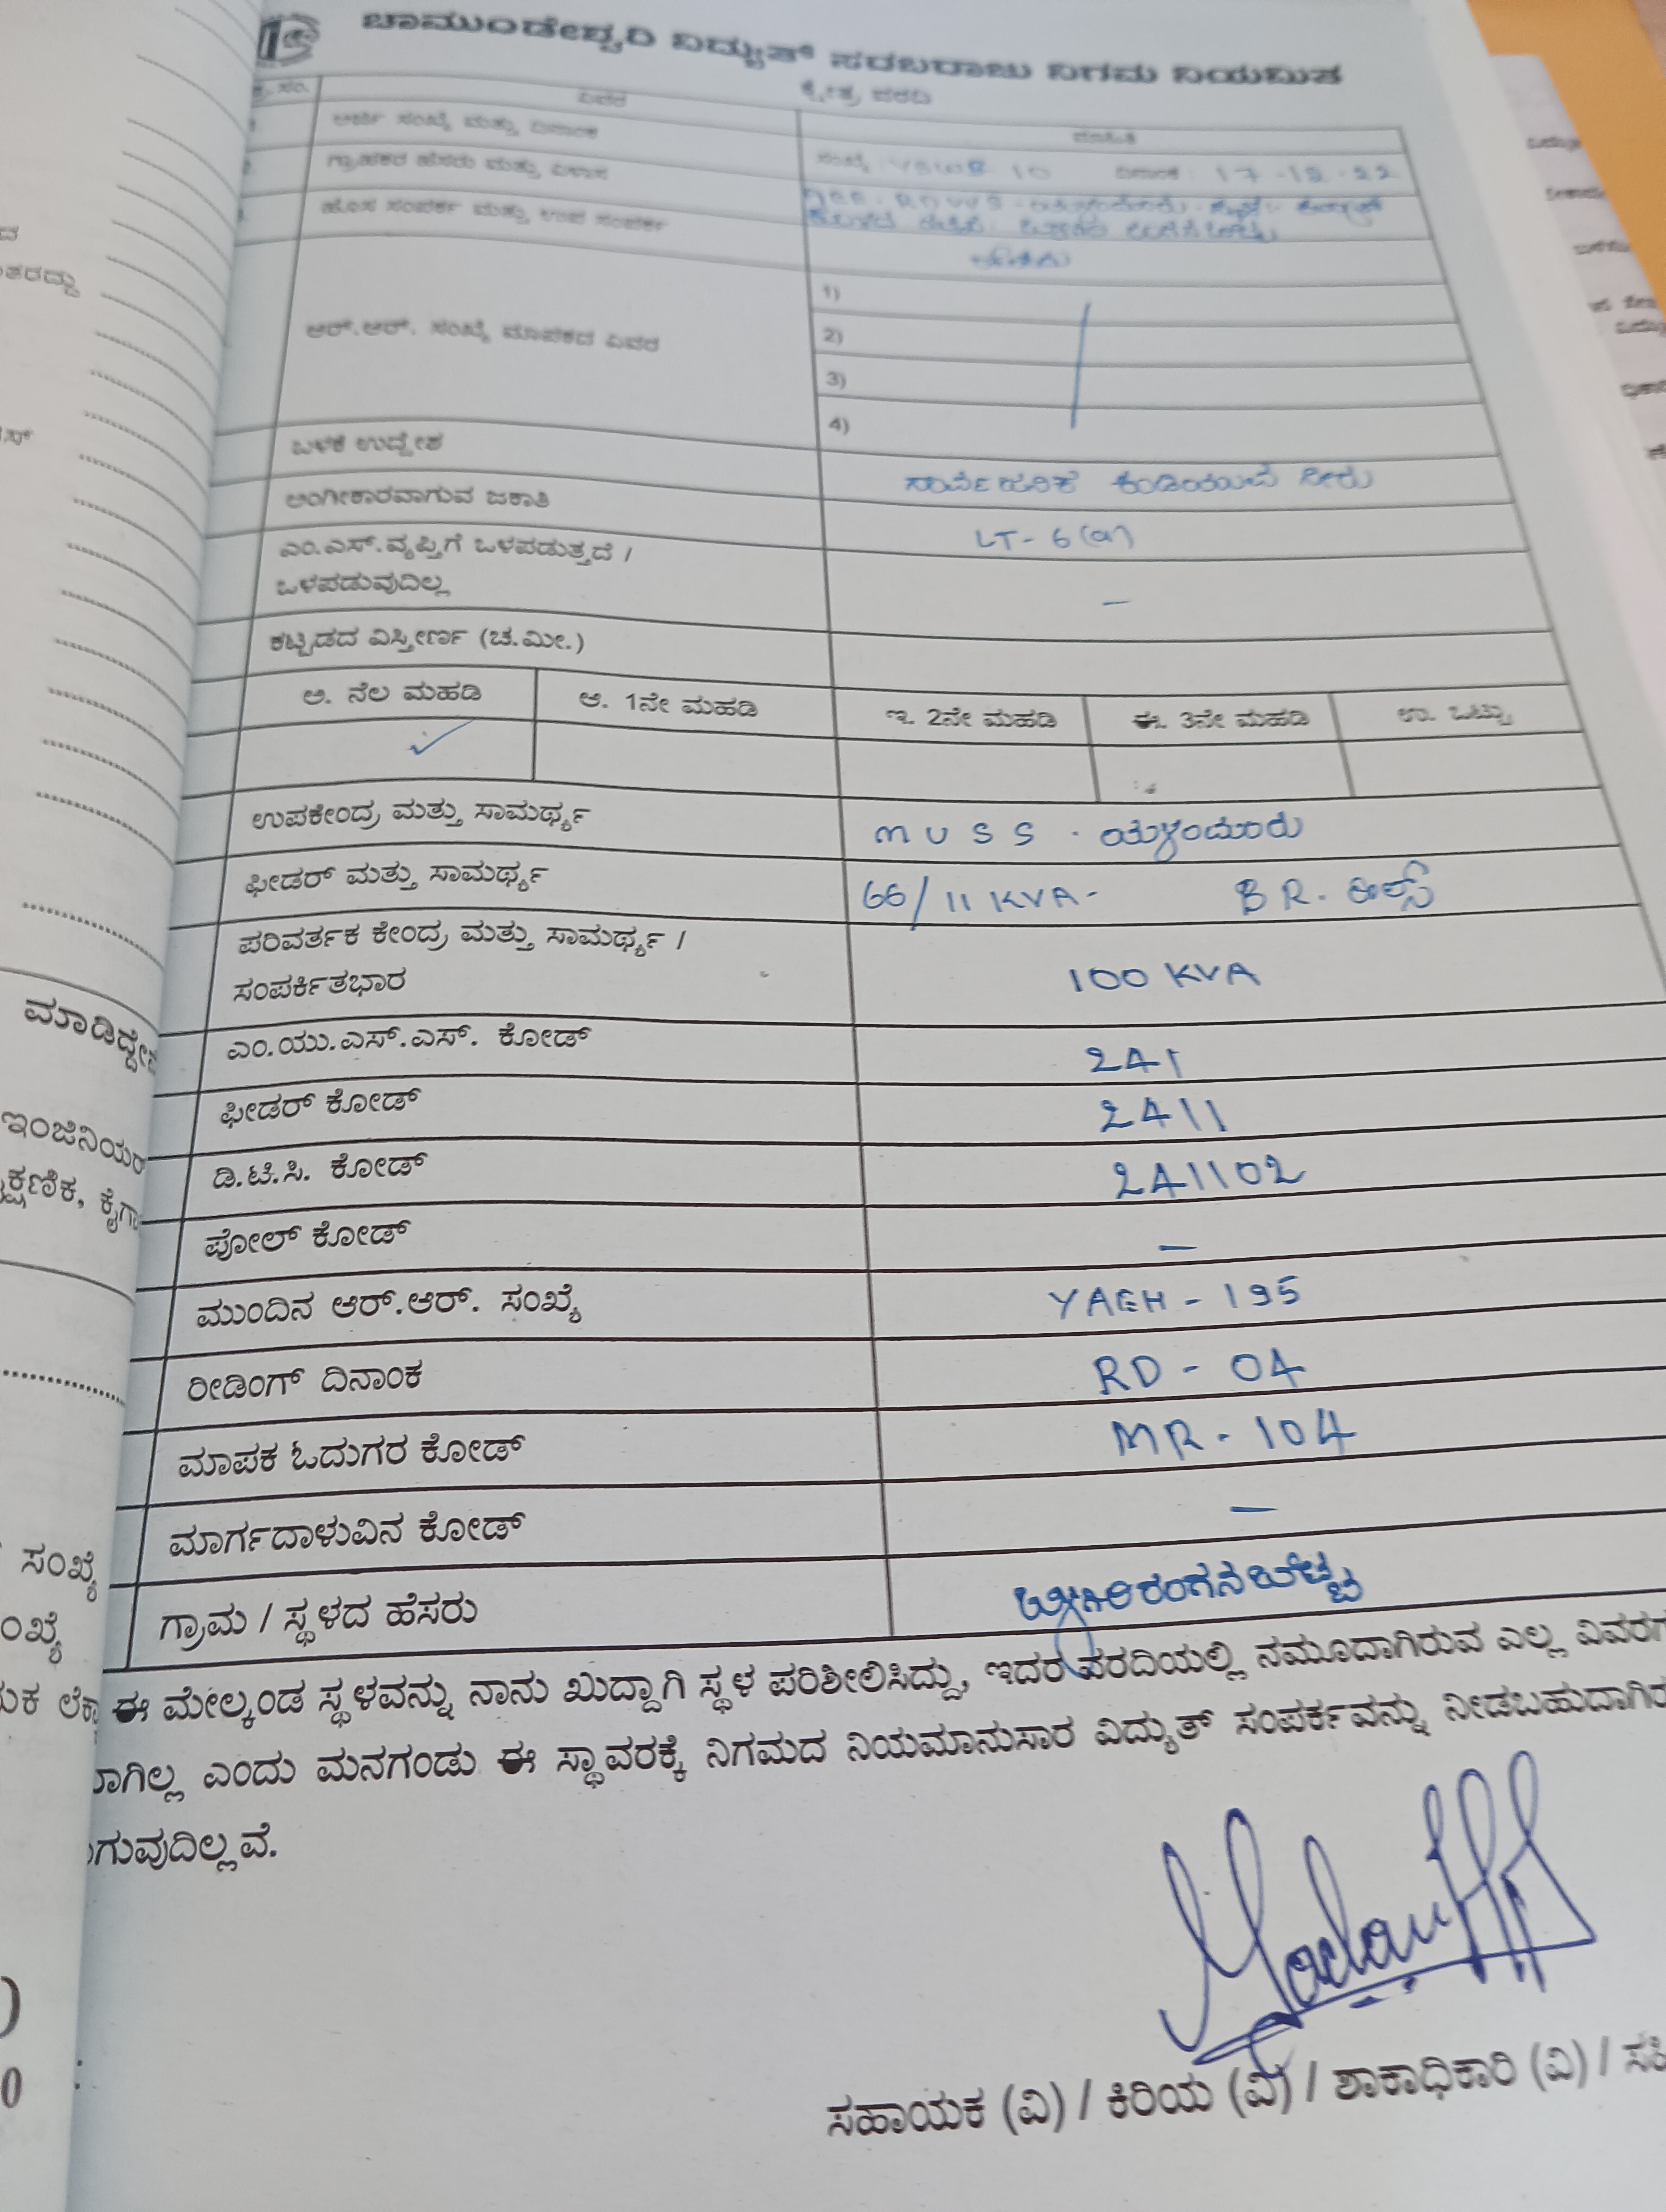 ಚಾಮುಂಡೇಶ್ವರಿ ವಿದ್ಯುತ್ ಸರಬರಾಜು ನಿಗಮ ನಿಯಮಿತ
ಕ್ಷೇತ್ರ ವರದಿ
ಕ್ರ.ಸಂ. ವಿವರ ಮಾಹಿತಿ
ಅರ್ಜಿ ಸಂಖ್ಯೆ ಮತ್ತು ದಿನಾಂಕ ಸಂಖ್ಯೆ : 10 ದಿನಾಂಕ : 17-12-22
ಗ್ರಾಹಕರ ಹೆಸರು ಮತ್ತು ವಿಳಾಸ
ಹೊಸ ಸಂಪರ್ಕ ಮತ್ತು ಉಪ ಸಂಪರ್ಕ
ಆರ್.ಆರ್. ಸಂಖ್ಯೆ ಮಾಪಕದ ವಿವರ
1)
2)
3)
4)
ಬಳಕೆ ಉದ್ದೇಶ ಸಾರ್ವಜನಿಕ ಕುಡಿಯುವ ನೀರು
ಅಂಗೀಕಾರವಾಗುವ ಜಕಾತಿ LT-6(a)
ಎಂ.ಎಸ್.ವ್ಯಪ್ತಿಗೆ ಒಳಪಡುತ್ತದೆ /
ಒಳಪಡುವುದಿಲ್ಲ –
ಕಟ್ಟಡದ ವಿಸ್ತೀರ್ಣ (ಚ.ಮೀ.)
ಅ. ನೆಲ ಮಹಡಿ ಆ. 1ನೇ ಮಹಡಿ ಇ. 2ನೇ ಮಹಡಿ ಈ. 3ನೇ ಮಹಡಿ ಉ. ಒಟ್ಟು
✓
ಉಪಕೇಂದ್ರ ಮತ್ತು ಸಾಮರ್ಥ್ಯ MUSS . ಯಳಂದೂರು
ಫೀಡರ್ ಮತ್ತು ಸಾಮರ್ಥ್ಯ 66/11 KVA- BR. ಹಿಲ್ಸ್
ಪರಿವರ್ತಕ ಕೇಂದ್ರ ಮತ್ತು ಸಾಮರ್ಥ್ಯ /
ಸಂಪರ್ಕಿತಭಾರ 100 KVA
ಎಂ.ಯು.ಎಸ್.ಎಸ್. ಕೋಡ್ 241
ಫೀಡರ್ ಕೋಡ್ 2411
ಡಿ.ಟಿ.ಸಿ. ಕೋಡ್ 241102
ಪೋಲ್ ಕೋಡ್ –
ಮುಂದಿನ ಆರ್.ಆರ್. ಸಂಖ್ಯೆ YAEH - 195
ರೀಡಿಂಗ್ ದಿನಾಂಕ RD - 04
ಮಾಪಕ ಓದುಗರ ಕೋಡ್ MR - 104
ಮಾರ್ಗದಾಳುವಿನ ಕೋಡ್ –
ಗ್ರಾಮ / ಸ್ಥಳದ ಹೆಸರು ಬಿಳಿಗಿರಿರಂಗನಬೆಟ್ಟ
ಈ ಮೇಲ್ಕಂಡ ಸ್ಥಳವನ್ನು ನಾನು ಖುದ್ದಾಗಿ ಸ್ಥಳ ಪರಿಶೀಲಿಸಿದ್ದು, ಇದರ ವರದಿಯಲ್ಲಿ ನಮೂದಾಗಿರುವ ಎಲ್ಲ
ಎಂದು ಮನಗಂಡು ಈ ಸ್ಥಾವರಕ್ಕೆ ನಿಗಮದ ನಿಯಮಾನುಸಾರ ವಿದ್ಯುತ್ ಸಂಪರ್ಕವನ್ನು
ಸಹಾಯಕ (ವಿ) / ಕಿರಿಯ (ವಿ) / ಶಾಕಾಧಿಕಾರಿ (ವಿ) /